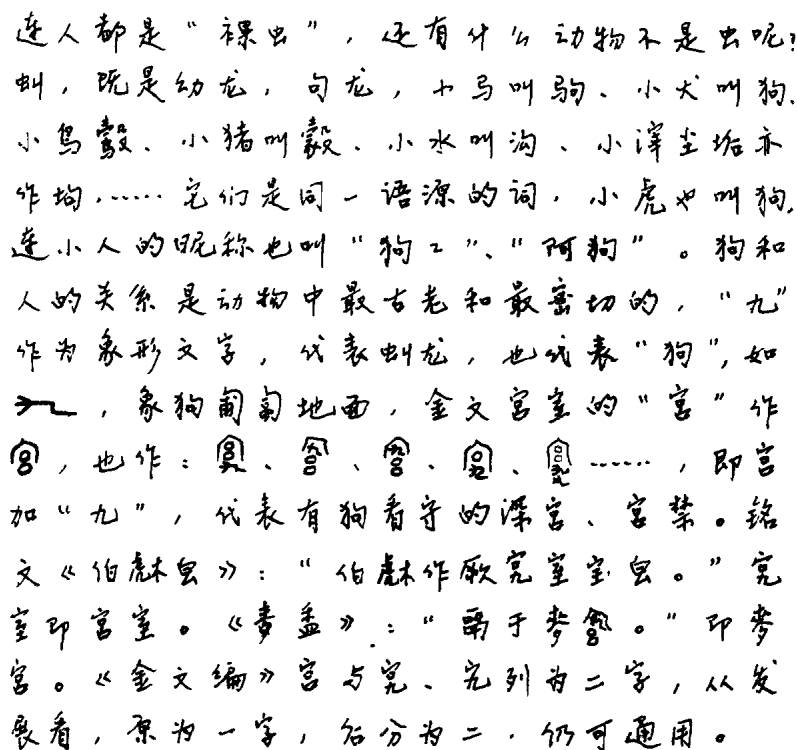 连人都是“裸虫”，还有什么动物不是虫呢？
虯，既是幼龙，句龙，小马叫驹、小犬叫狗、
小鸟鷇、小猪叫豰、小水叫沟、小滓尘垢亦
作坸，……它们是同一语源的词，小虎也叫狗，
连小人的昵称也叫“狗〻”、“阿狗”。狗和
人的关系是动物中最古老和最密切的，“九”
作为象形文字，代表虯龙，也代表“狗”，如
，象狗匍匐地面，金文宫室的“宫”作
，也作：、、、、……，即宫
加“九”，代表有狗看守的深宫、宫禁。铭
文《伯》：“伯作厥室宝。”
室即宫室。《孟》：“于麥。”即麥
宫。《金文编》宫与、列为二字，从发
展看，原为一字，后分为二，仍可通用。